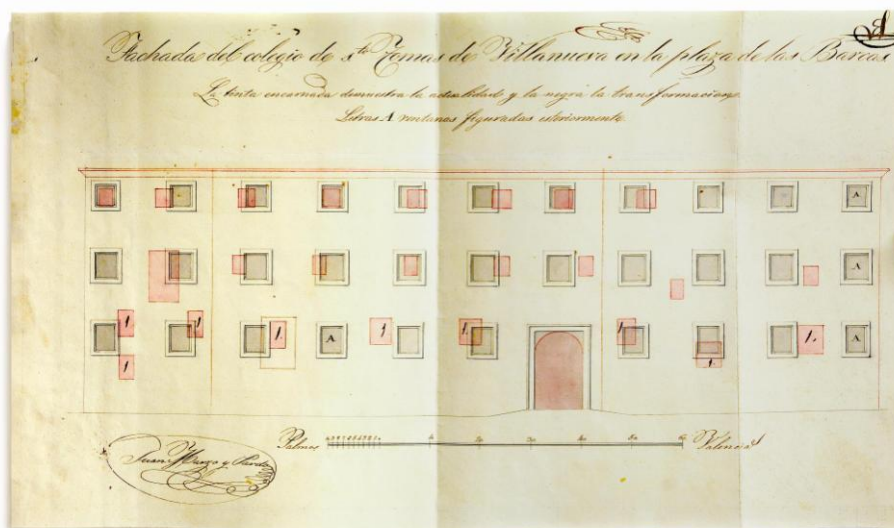 A
Fachada del colegio de sto Tomas de Villanueva en la plaza de las Barcas
La tinta encarnada demuestra la actualidad y la negra la transformacion.
Letras A ventanas figuradas esteriormente.
A
A
1 1 1. A 1 1. 1. 1. 1. A
1
Palmos 10 20 30 40 50 60 Valencia
Juan Marzo y Pardo